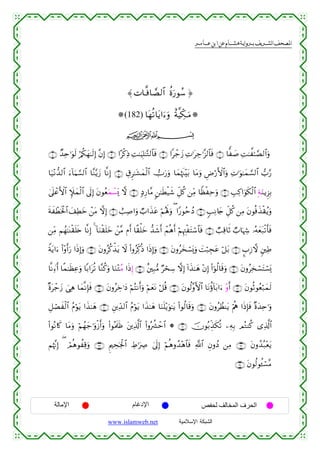 المصحف الشريف برواية هشام عن ابن عامر
﴿ سُورَةُ الصَّافَّاتِ ﴾
*مَكِّيَّةٌ وَءَايَاتُهَا (182)*
بِسْمِ اللَّهِ الرَّحْمَٰنِ الرَّحِيمِ
وَٱلصَّٰٓفَّٰتِ صَفًّا ۝ فَٱلزَّٰجِرَٰتِ زَجْرًا ۝ فَٱلتَّٰلِيَٰتِ ذِكْرًا ۝ إِنَّ إِلَٰهَكُمْ لَوَٰحِدٌ ۝
رَّبُّ ٱلسَّمَٰوَٰتِ وَٱلْأَرْضِ وَمَا بَيْنَهُمَا وَرَبُّ ٱلْمَشَٰرِقِ ۝ إِنَّا زَيَّنَّا ٱلسَّمَآءَ ٱلدُّنْيَا
بِزِينَةِ ٱلْكَوَاكِبِ ۝ وَحِفْظًا مِّن كُلِّ شَيْطَٰنٍ مَّارِدٍ ۝ لَّا يَسْمَعُونَ إِلَى ٱلْمَلَإِ ٱلْأَعْلَىٰ
وَيُقْذَفُونَ مِن كُلِّ جَانِبٍ ۝ دُحُورًا وَلَهُمْ عَذَابٌ وَاصِبٌ ۝ إِلَّا مَنْ خَطِفَ ٱلْخَطْفَةَ
فَأَتْبَعَهُۥ شِهَابٌ ثَاقِبٌ ۝ فَٱسْتَفْتِهِمْ أَهُمْ أَشَدُّ خَلْقًا أَم مَّنْ خَلَقْنَا إِنَّا خَلَقْنَٰهُم مِّن
طِينٍ لَّازِبٍ ۝ بَلْ عَجِبْتَ وَيَسْخَرُونَ ۝ وَإِذَا ذُكِّرُوا۟ لَا يَذْكُرُونَ ۝ وَإِذَا رَأَوْا۟ ءَايَةً
يَسْتَسْخِرُونَ ۝ وَقَالُوٓا۟ إِنْ هَٰذَآ إِلَّا سِحْرٌ مُّبِينٌ ۝ إِذَا مُتْنَا وَكُنَّا تُرَابًا وَعِظَٰمًا أَءِنَّا
لَمَبْعُوثُونَ ۝ أَوْ ءَابَآؤُنَا ٱلْأَوَّلُونَ ۝ قُلْ نَعَمْ وَأَنتُمْ دَٰخِرُونَ ۝ فَإِنَّمَا هِىَ زَجْرَةٌ
وَٰحِدَةٌ فَإِذَا هُمْ يَنظُرُونَ ۝ وَقَالُوا۟ يَٰوَيْلَنَا هَٰذَا يَوْمُ ٱلدِّينِ ۝ هَٰذَا يَوْمُ ٱلْفَصْلِ
ٱلَّذِى كُنتُم بِهِۦ تُكَذِّبُونَ ۝ * ٱحْشُرُوا۟ ٱلَّذِينَ ظَلَمُوا۟ وَأَزْوَٰجَهُمْ وَمَا كَانُوا۟
يَعْبُدُونَ ۝ مِن دُونِ ٱللَّهِ فَٱهْدُوهُمْ إِلَىٰ صِرَٰطِ ٱلْجَحِيمِ ۝ وَقِفُوهُمْ إِنَّهُم
مَّسْـُٔولُونَ ۝
الحرف المخالف لحفص الإدغام الإمالة
الشبكة الإسلامية www.islamweb.net